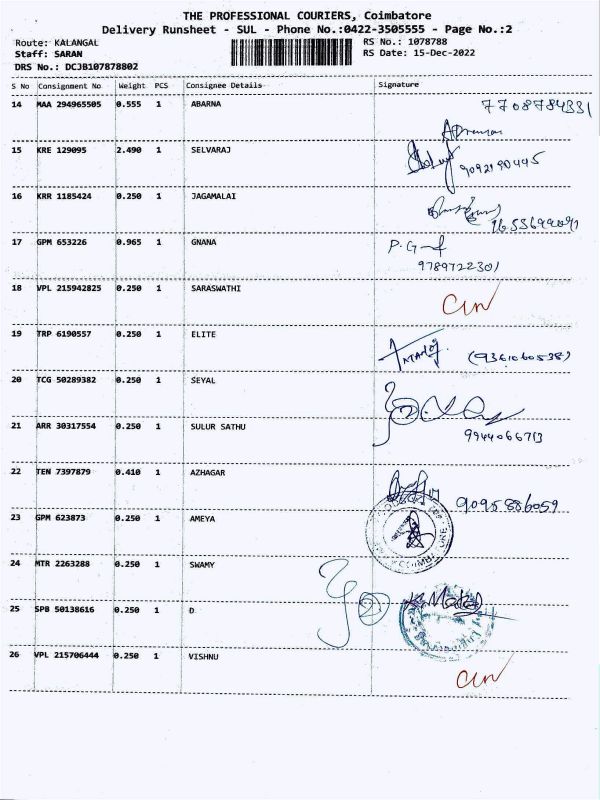 THE PROFESSIONAL COURIERS, Coimbatore
Delivery Runsheet - SUL - Phone No.:0422-3505555 - Page No.:2
Route: KALANGAL RS No.: 1078788
Staff: SARAN RS Date: 15-Dec-2022
DRS No.: DCJB107878802
S No Consignment No Weight PCS Consignee Details Signature
14 MAA 294965505 0.555 1 ABARNA 7708784331
15 KRE 129095 2.490 1 SELVARAJ
16 KRR 1185424 0.250 1 JAGAMALAI
17 GPM 653226 0.965 1 GNANA
9789722301
18 VPL 215942825 0.250 1 SARASWATHI
19 TRP 6190557 0.250 1 ELITE (9361060538)
20 TCG 50289382 0.250 1 SEYAL
21 ARR 30317554 0.250 1 SULUR SATHU
9944066713
22 TEN 7397879 0.410 1 AZHAGAR
9095886059
23 GPM 623873 0.250 1 AMEYA
24 MTR 2263288 0.250 1 SWAMY
25 SPB 50138616 0.250 1 D
26 VPL 215706444 0.250 1 VISHNU